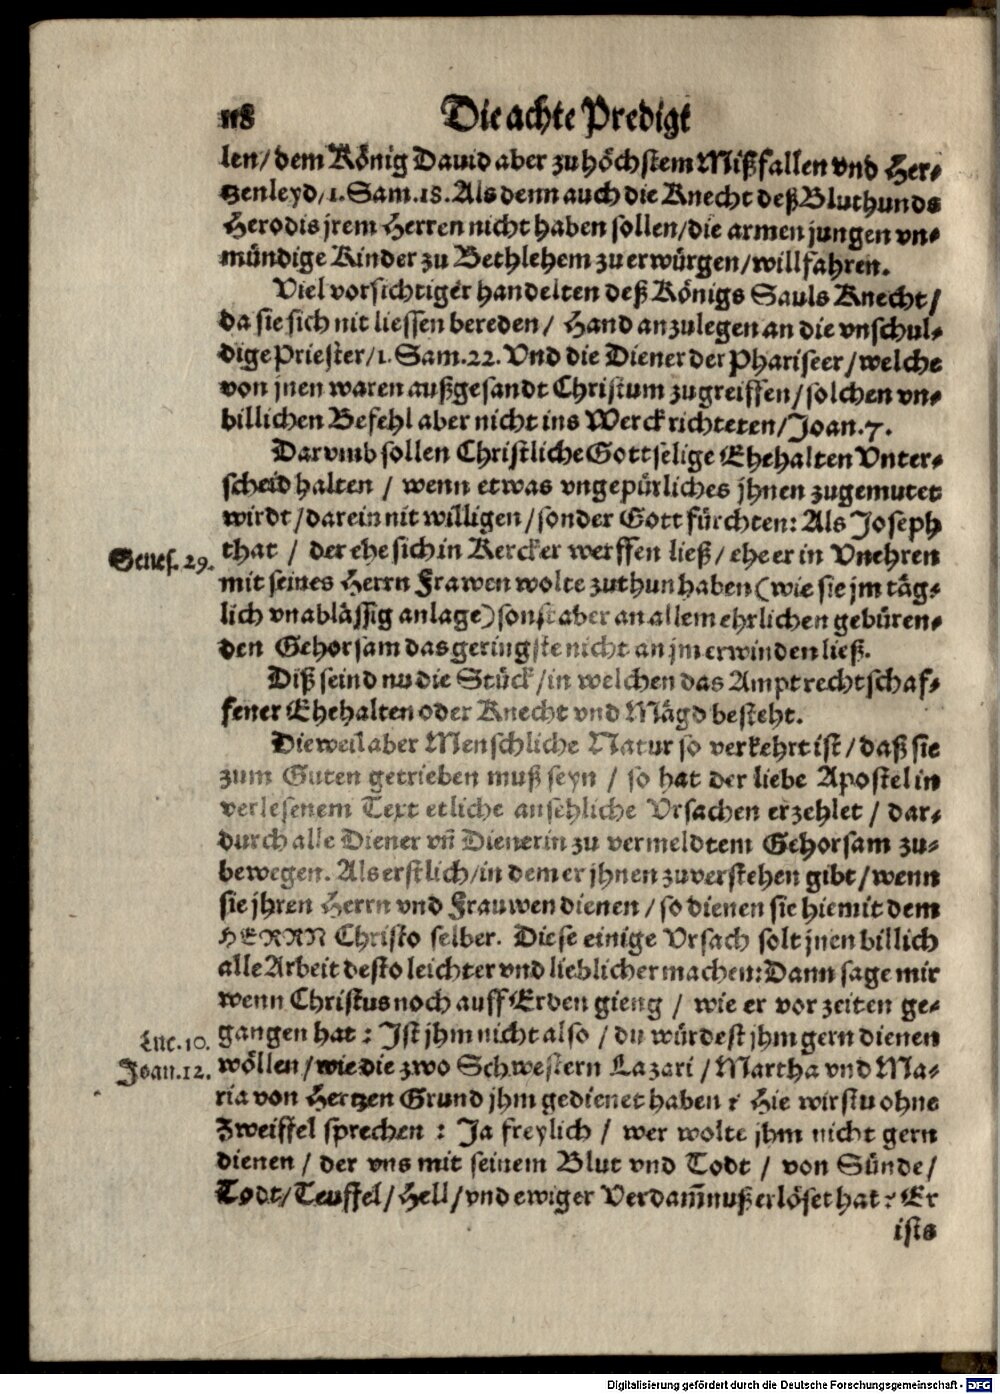 118 Die achte Predigt
len/ dem König Dauid aber zu höchstem Mißfallen vnd Her-
tzenleyd/ 1. Sam. 18. Als denn auch die Knecht deß Bluthunds
Herodis jrem Herren nicht haben sollen/ die armen jungen vn-
mündige Kinder zu Bethlehem zu erwürgen/ willfahren.
Viel vorsichtiger handelten deß Königs Sauls Knecht/
da sie sich nit liessen bereden/ Hand anzulegen an die vnschul-
dige Priester/ 1. Sam. 22. Vnd die Diener der Phariseer/ welche
von jnen waren außgesandt Christum zugreiffen/ solchen vn-
billichen Befehl aber nicht ins Werck richteten/ Joan. 7.
Darumb sollen Christliche Gottselige Ehehalten Vnter-
scheid halten / wenn etwas vngepürliches jhnen zugemutet
wirdt/ darein nit willigen/ sonder Gott fürchten: Als Joseph
Genes. 29. that / der ehe sich in Kercker werffen ließ/ ehe er in Vnehren
mit seines Herrn Frawen wolte zuthun haben (wie sie jm täg-
lich vnablässig anlage) sonst aber an allem ehrlichen gebüren-
den Gehorsam das geringste nicht an jm erwinden ließ.
Diß seind nu die Stück/ in welchen das Ampt rechtschaf-
fener Ehehalten oder Knecht vnd Mägd besteht.
Dieweil aber Menschliche Natur so verkehrt ist/ daß sie
zum Guten getrieben muß seyn / so hat der liebe Apostel in
verlesenem Text etliche ansehliche Vrsachen erzehlet / dar-
durch alle Diener vn̄ Dienerin zu vermeldtem Gehorsam zu-
bewegen. Als erstlich/ in dem er jhnen zuverstehen gibt/ wenn
sie jhren Herrn vnd Frauwen dienen/ so dienen sie hiemit dem
HERRN Christo selber. Diese einige Vrsach solt jnen billich
alle Arbeit desto leichter vnd lieblicher machen: Dann sage mir
wenn Christus noch auff Erden gieng / wie er vor zeiten ge-
Luc. 10. gangen hat: Ist jhm nicht also / du würdest jhm gern dienen
Joan. 12. wöllen/ wie die zwo Schwestern Lazari / Martha vnd Ma-
ria von Hertzen Grund jhm gedienet haben? Hie wirstu ohne
Zweiffel sprechen: Ja freylich / wer wolte jhm nicht gern
dienen/ der vns mit seinem Blut vnd Todt / von Sünde/
Todt/ Teuffel/ Hell/ vnd ewiger Verdam̄nuß erlöset hat? Er
ists
Digitalisierung gefördert durch die Deutsche Forschungsgemeinschaft - DFG